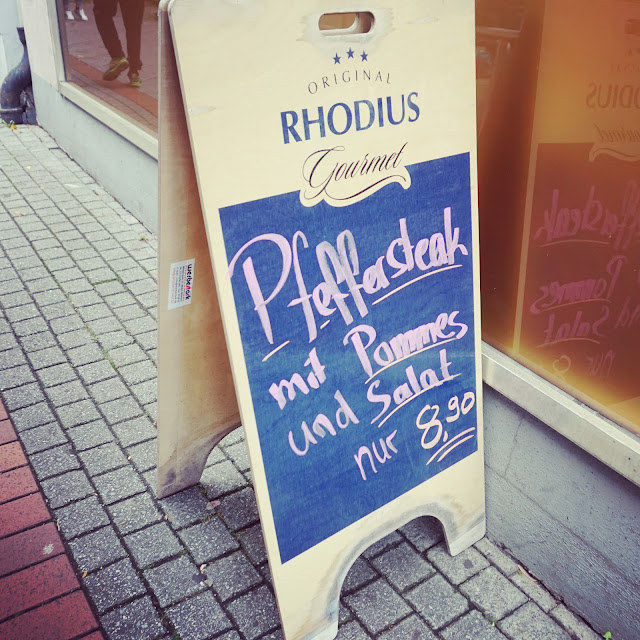 ORIGINAL
RHODIUS
Gourmet
Pfeffersteak
mit Pommes
und Salat
nur 8,90